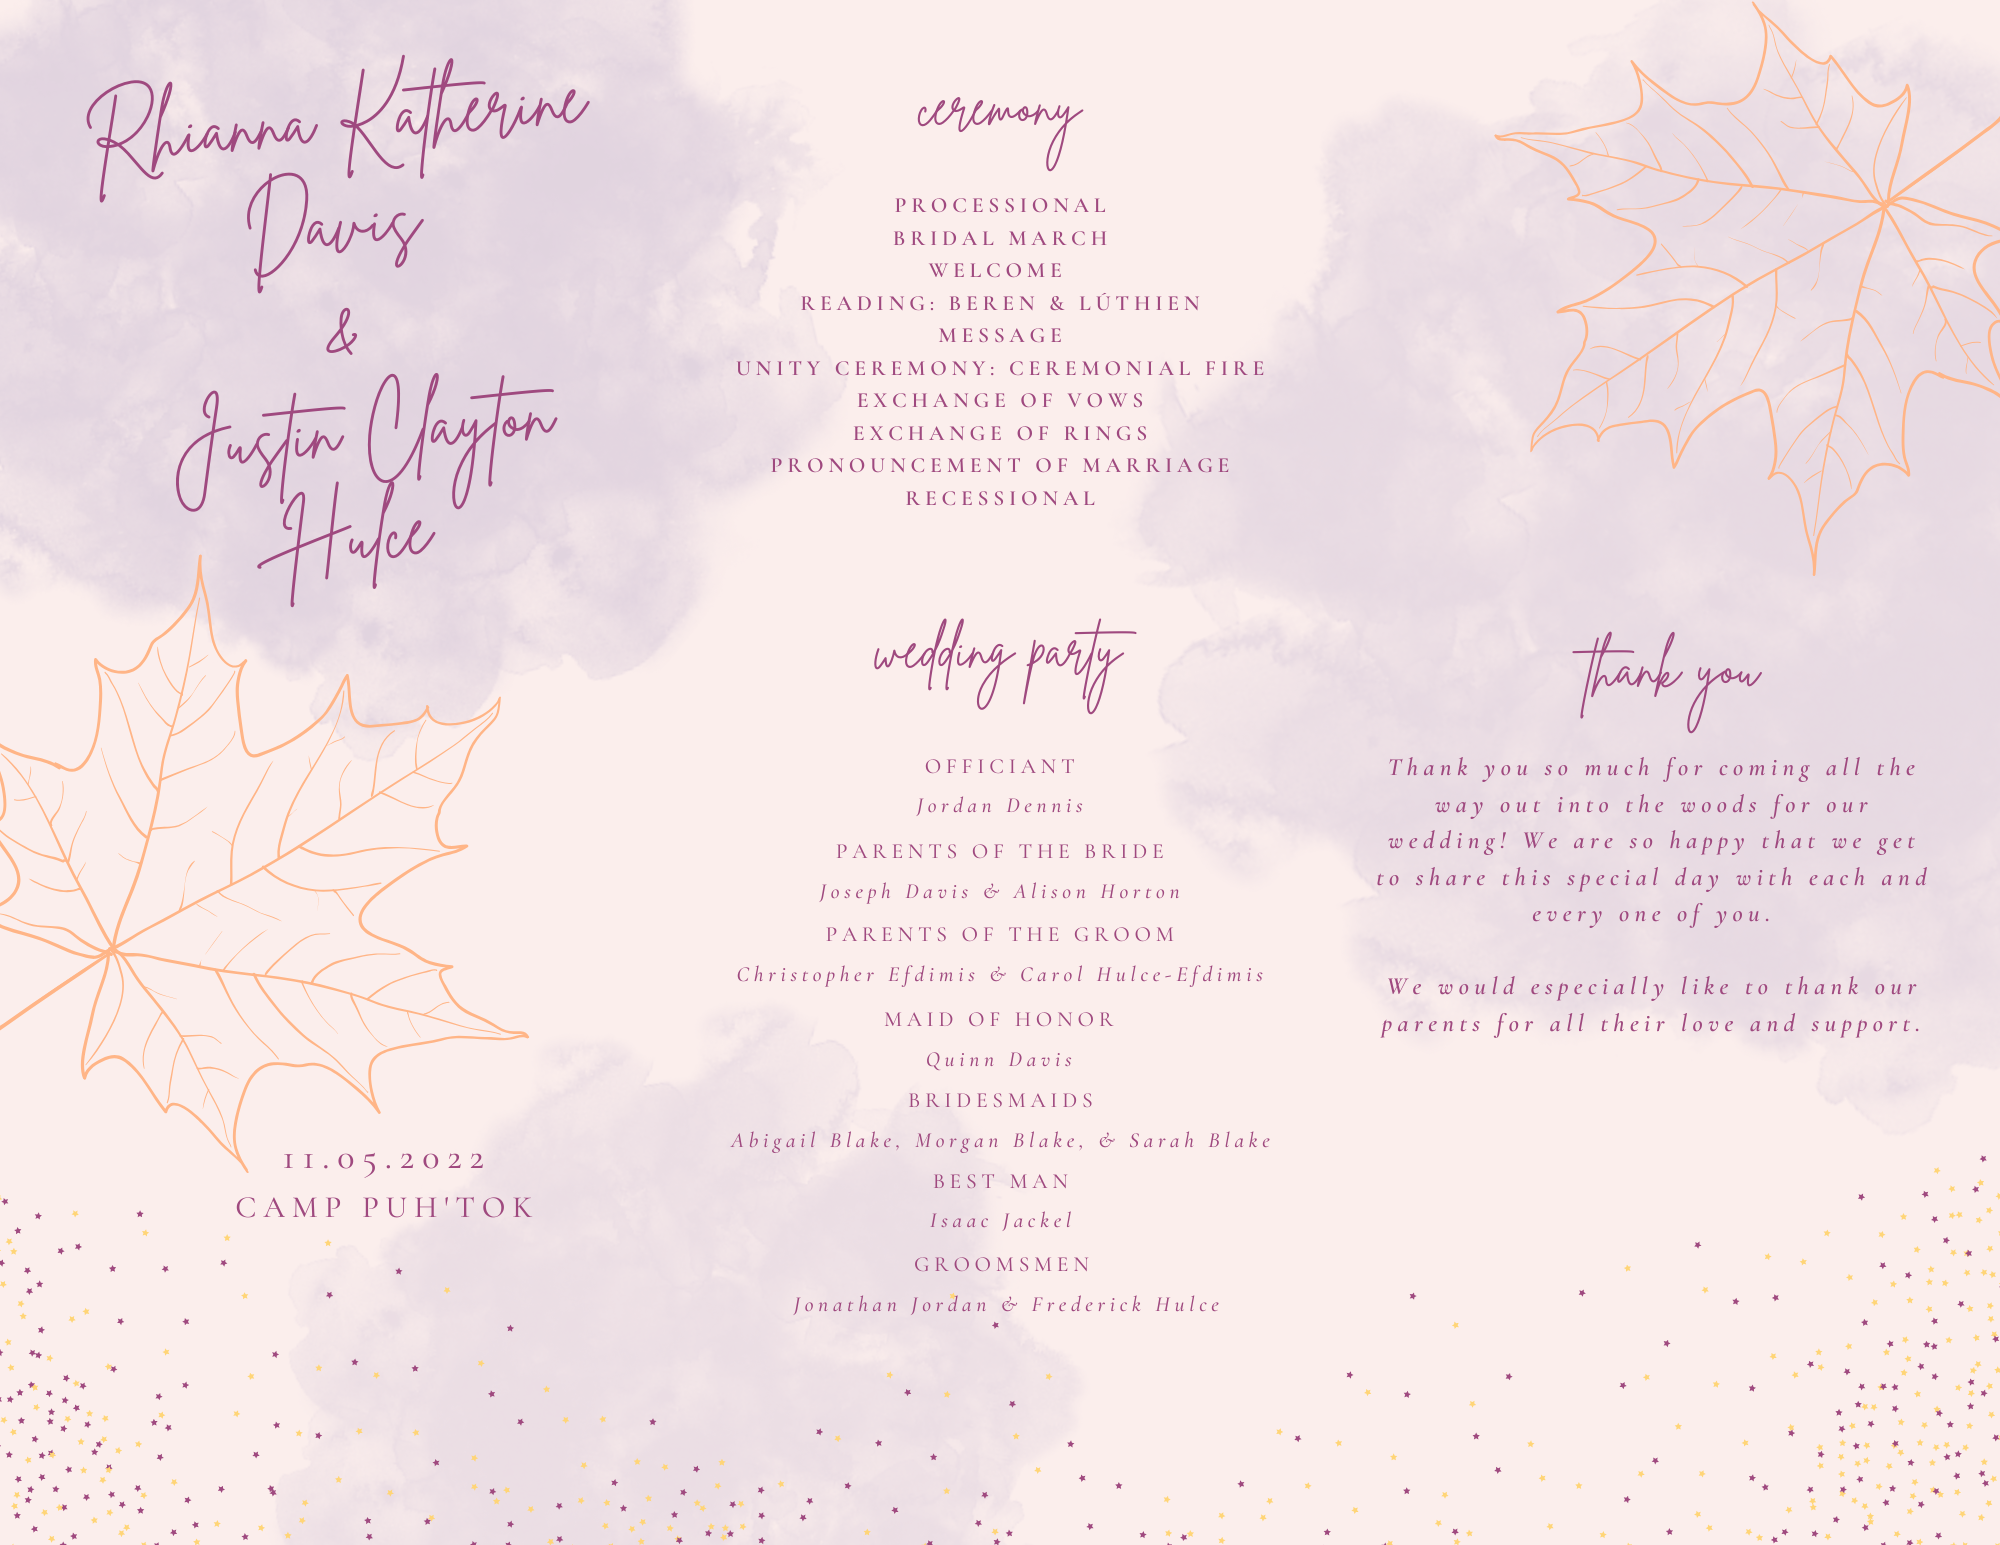 Rhianna Katherine
Davis
&
Justin Clayton
Hulce
11.05.2022
CAMP PUH'TOK
ceremony
PROCESSIONAL
BRIDAL MARCH
WELCOME
READING: BEREN & LÚTHIEN
MESSAGE
UNITY CEREMONY: CEREMONIAL FIRE
EXCHANGE OF VOWS
EXCHANGE OF RINGS
PRONOUNCEMENT OF MARRIAGE
RECESSIONAL
wedding party
OFFICIANT
Jordan Dennis
PARENTS OF THE BRIDE
Joseph Davis & Alison Horton
PARENTS OF THE GROOM
Christopher Efdimis & Carol Hulce-Efdimis
MAID OF HONOR
Quinn Davis
BRIDESMAIDS
Abigail Blake, Morgan Blake, & Sarah Blake
BEST MAN
Isaac Jackel
GROOMSMEN
Jonathan Jordan & Frederick Hulce
thank you
Thank you so much for coming all the
way out into the woods for our
wedding! We are so happy that we get
to share this special day with each and
every one of you.
We would especially like to thank our
parents for all their love and support.